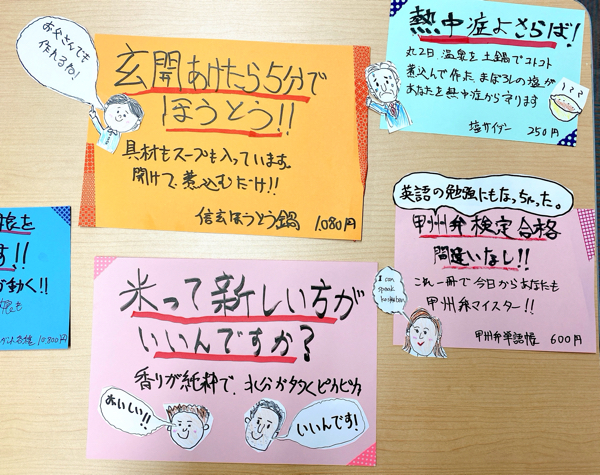 お父さんでも
作れるね!
玄関あけたら5分で
ほうとう!!
具材もスープも入っています。
開けて、煮込むだけ!!
信玄ほうとう鍋 1,080円
熱中症よさらば!
丸2日、温泉を土鍋でコトコト
煮込んで作った、まぼろしの塩が
あなたを熱中症から守ります
塩サイダー 250円
娘を
す!!
が動く!!
10,800円
英語の勉強にもなっちゃった。
甲州弁検定合格
間違いなし!!
これ一冊で今日からあなたも
甲州弁マイスター!!
甲州弁単語帳 600円
I can
speak
米って新しい方が
いいんですか?
香りが純粋で、水分が多くピカピカ
おいしい!!
いいんです!